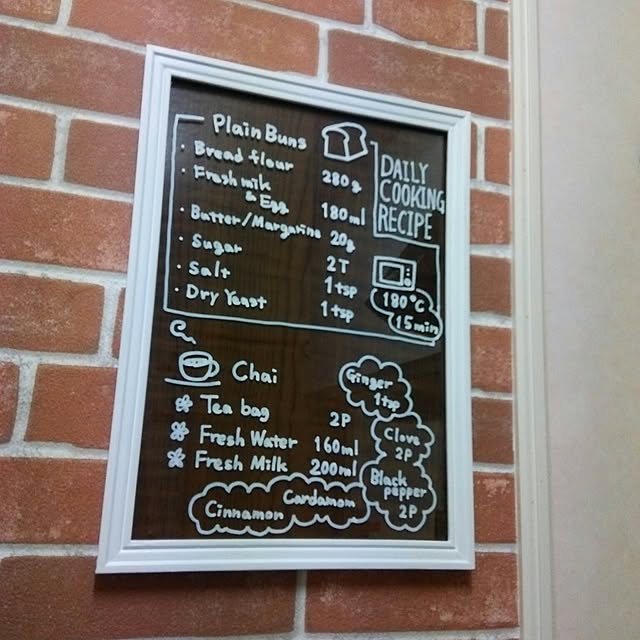 Plain Buns
· Bread flour 280g
· Fresh milk
& Egg 180ml
· Butter/Margarine 20g
· Sugar 2T
· Salt 1tsp
· Dry Yeast 1tsp
DAILY
COOKING
RECIPE
180°C
15min
Chai
Tea bag 2P
Fresh Water 160ml
Fresh Milk 200ml
Ginger
1tsp
Clove
2P
Black
pepper
2P
Cardamom
Cinnamon